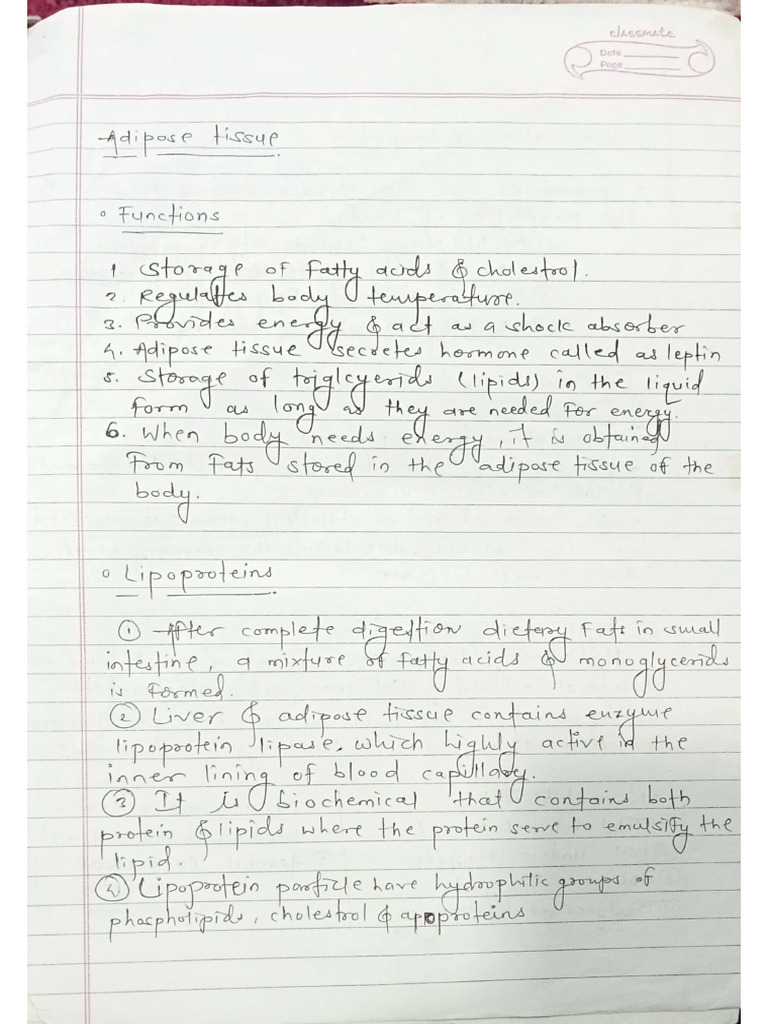 classmate
Date
Page
Adipose tissue
Functions
1. Storage of fatty acids & cholestrol.
2. Regulates body temperature.
3. Provides energy & act as a shock absorber
4. Adipose tissue secretes hormone called as leptin
5. Storage of triglcyerids (lipids) in the liquid
form as long as they are needed for energy.
6. When body needs energy, it is obtained
from fats stored in the adipose tissue of the
body.
Lipoproteins
① After complete digestion dietery fats in small
intestine, a mixture of fatty acids & monoglycerids
is formed.
② Liver & adipose tissue contains enzyme
lipoprotein lipase, which highly active in the
inner lining of blood capillary.
③ It is biochemical that contains both
protein & lipids where the protein serve to emulsify the
lipid.
④ Lipoprotein particle have hydrophilic groups of
phospholipids, cholestrol & apoproteins